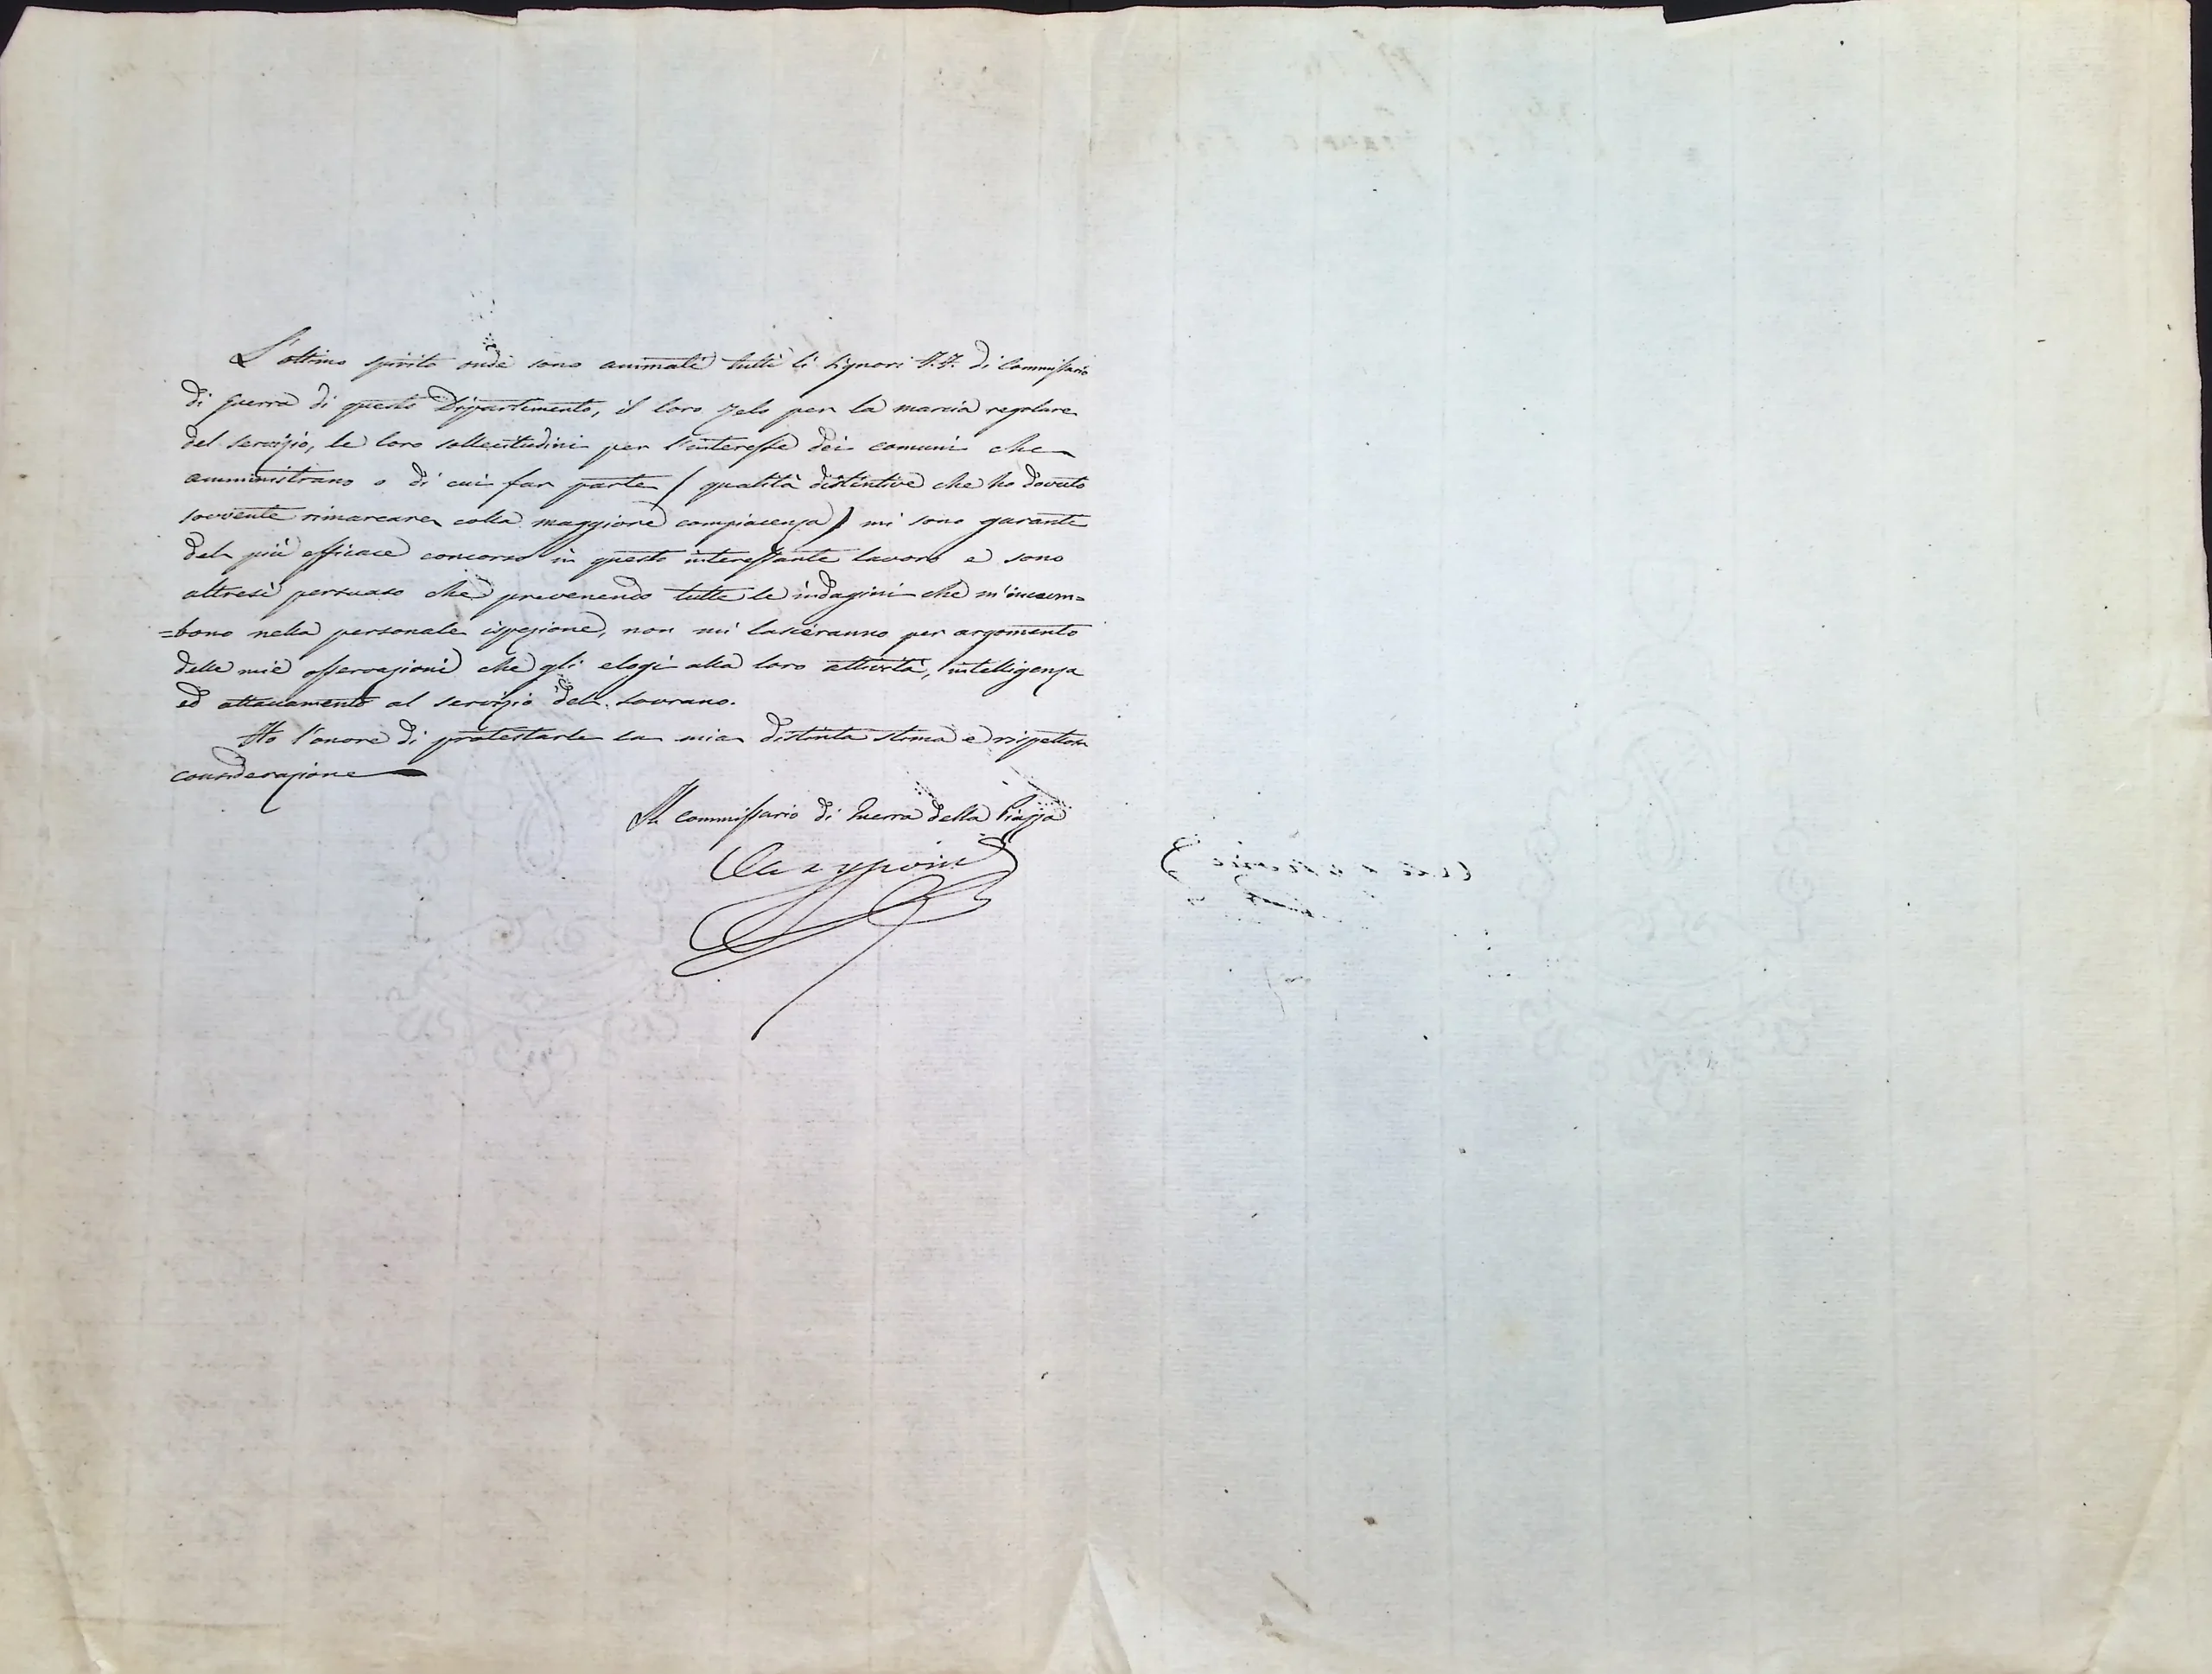 L'ottimo spirito onde sono animati tutti li Signori F.F. di Commissario
di guerra di questo Dipartimento, il loro zelo per la marcia regolare
del servizio, le loro sollecitudini per l'interesse dei comuni che
amministrano o di cui fan parte / qualità distintive che ho dovuto
sovvente rimarcare colla maggiore compiacenza / mi sono garante
del più efficace concorso in questo interessante lavoro e sono
altresì persuaso che prevenendo tutte le indagini che m'incum=
=bono nella personale ispezione, non mi lascieranno per argomento
delle mie osservazioni che gli elogi alla loro attività, intelligenza
ed attaccamento al servizio del Sovrano.
Ho l'onore di protestarle la mia distinta stima e rispettosa
considerazione
Il Commissario di Guerra della Piazza